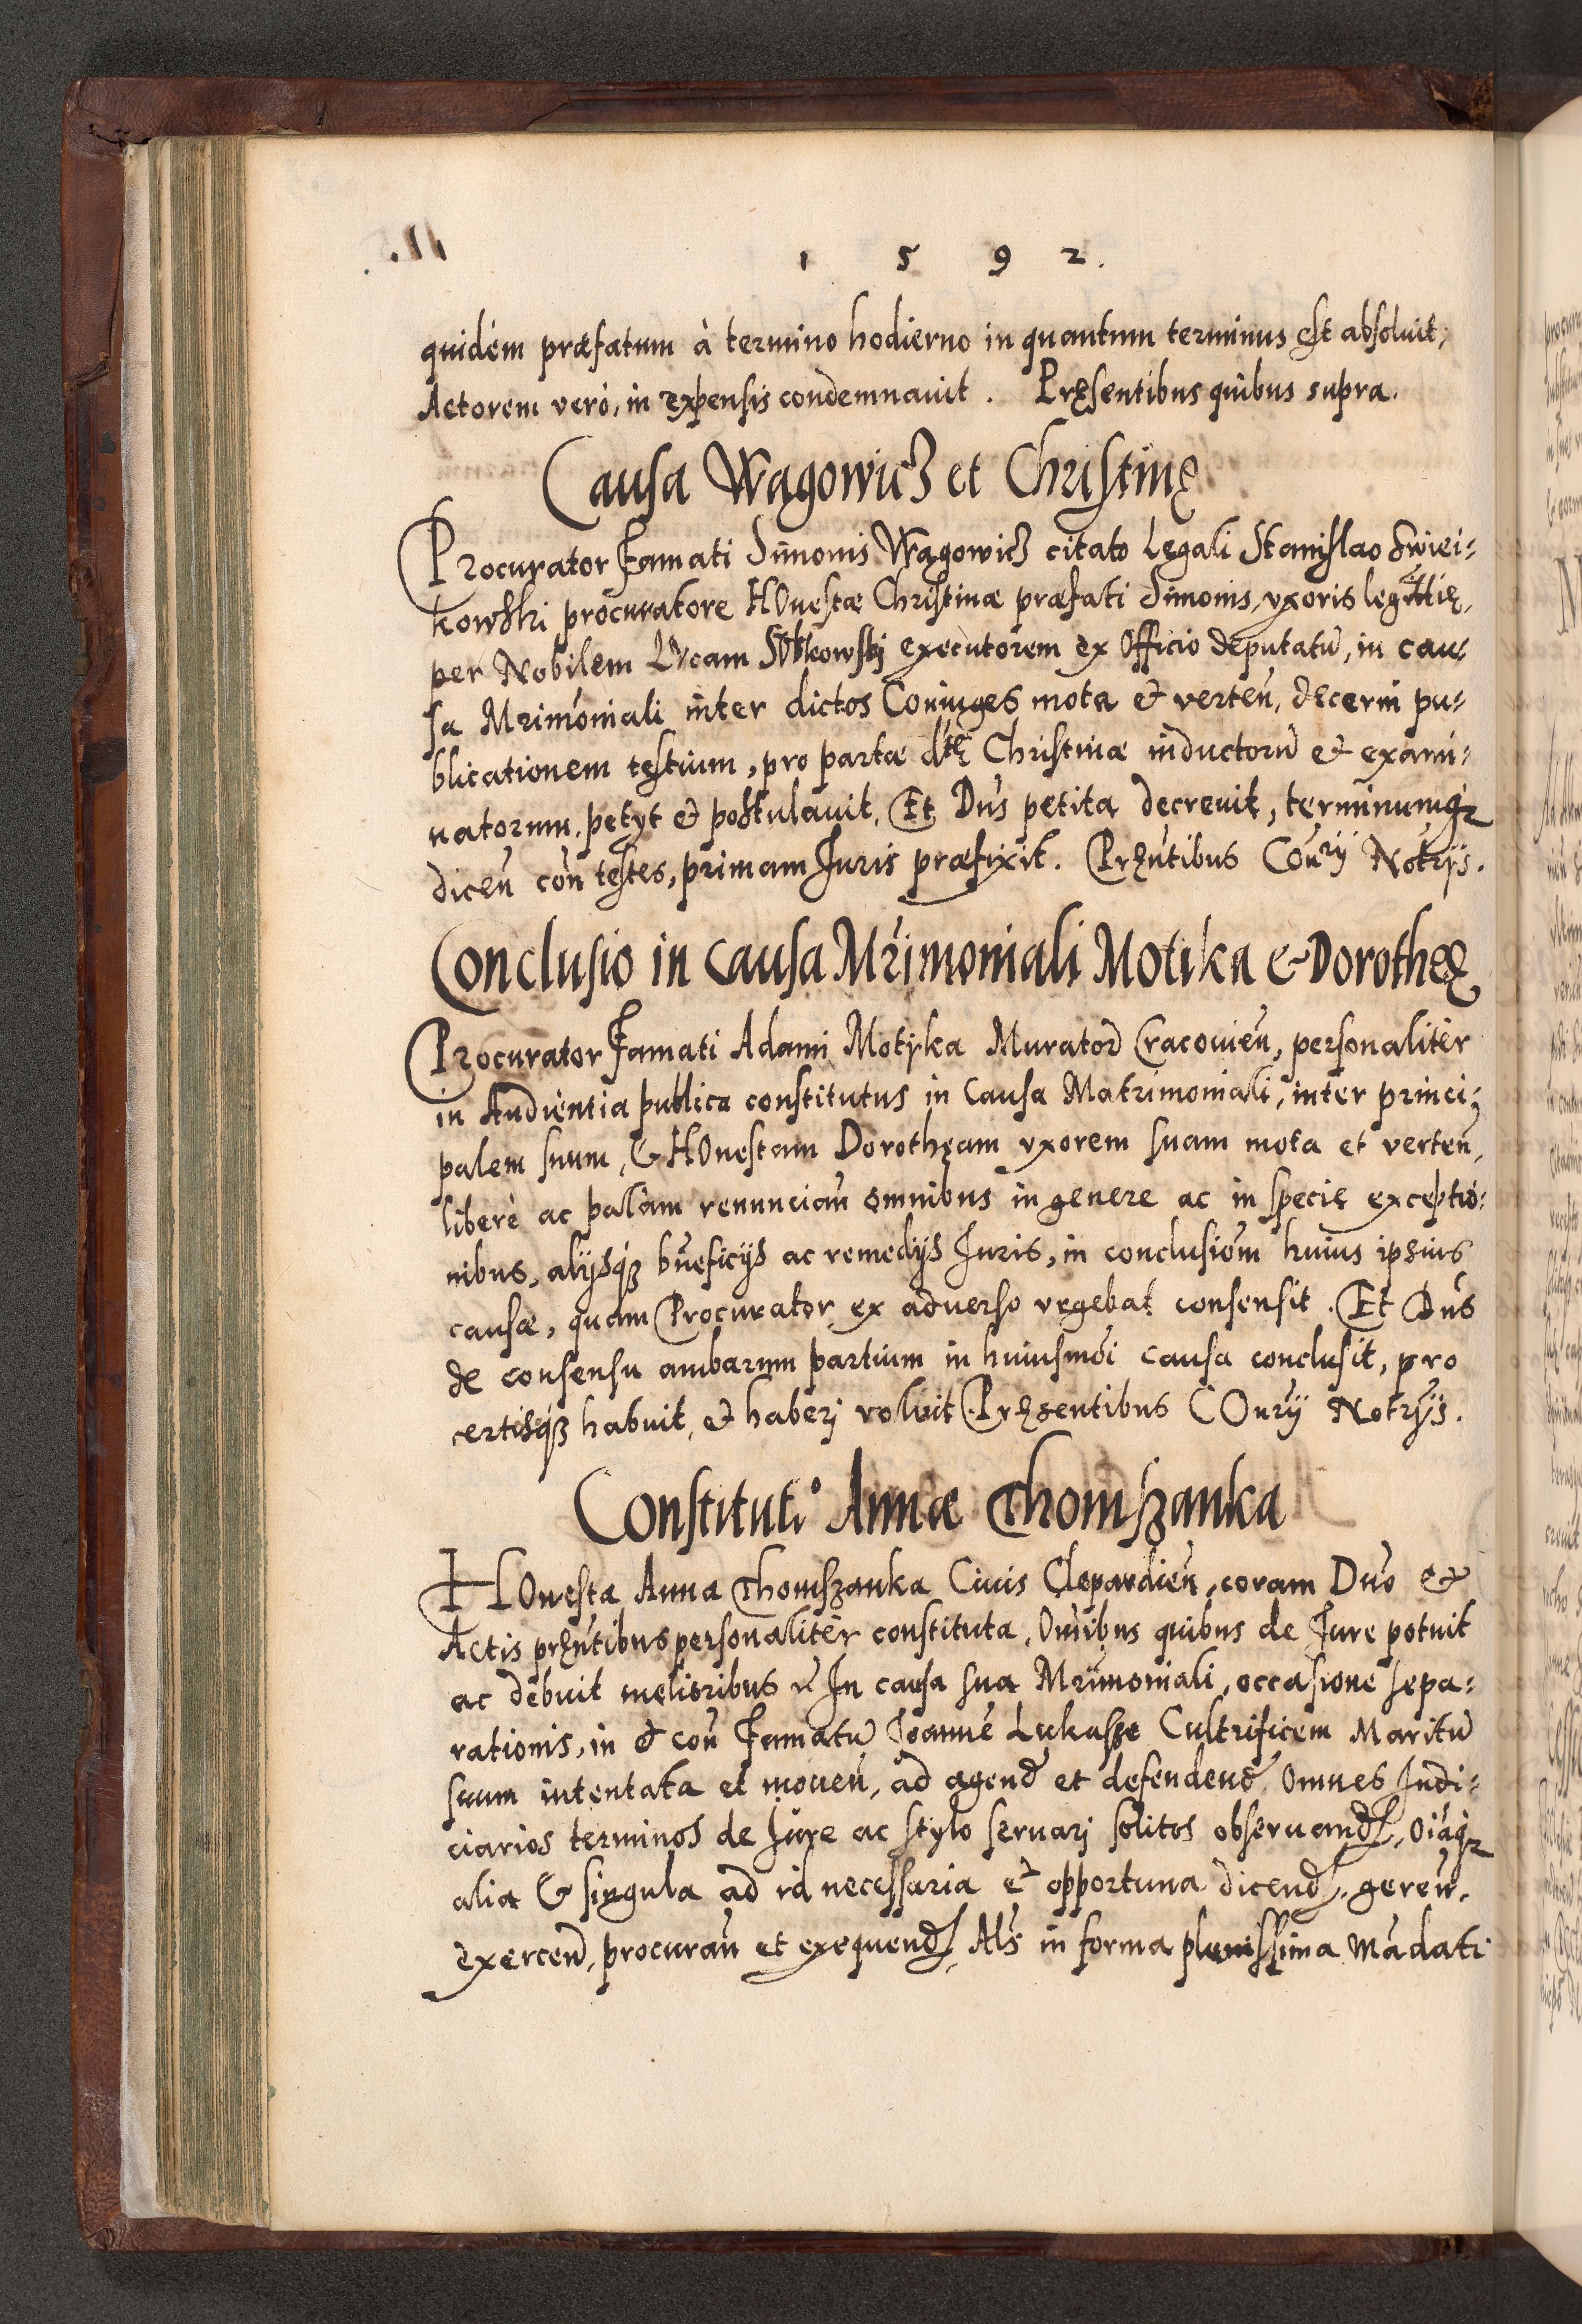 1 5 9 2.
quidem præfatum à termino hodierno in quantum terminus est absoluit,
Actorem verò, in expensis condemnauit. Pręsentibus quibus supra.
Causa Wągowicz et Christinę
Procurator Famati Simonis Wągowicz citato Legali Stanislao Swiei-
kowski procuratore HOnestæ Christinæ præfati Simonis, vxoris legittię,
per Nobilem Lucam executorem ex Officio deputatū, in cau-
sa Mrimoniali inter dictos Coniuges mota et verteñ, decerni pu-
blicationem testium, pro parte dtę Christinæ inductorū et exami-
natorum, petyt et postulauit, Et Dns petita decreuit, terminumq
diceñ coñ testes, primam Juris præfixit. Pręntibus Coñrÿ Notrijs.
Conclusio in Causa Mrimoniali Motika & Dorotheę
Procurator Famati Adami Motÿka Murator Cracouieñ, personaliter
in Audientia publica constitutus in Causa Matrimoniali, inter princi-
palem suum, & HOnestam Dorothęam vxorem suam mota et verteñ,
liberè ac palàm renunciañ omnibus in genere ac in specię exceptio-
nibus, alijsq; bneficijs ac remedijs Juris, in conclusiom huius ipsius
causæ, quam Procurator ex aduerso vrgebat consensit. Et Dns
de consensu ambarum partium in huiusmoi causa conclusit, pro
certisq; habuit, et haberj voluit. Pręsentibus COnrÿ Notrÿs.
Constituti° Annæ Thomszanka
HOnesta Anna Thomszanka Ciuis Clepardieñ, coram Dno et
Actis pręntibus personaliter constituta, Omibus quibus de Jure potuit
ac debuit melioribus r In causa sua Mrimoniali, occasione sepa-
rationis, in et coñ Famatū Joannē Lukasze Cultrificem Maritū
suum intentata et moueñ, ad agend et defendend, Omnes Judi-
ciarios terminos de Jure ac stylo seruarj solitos obseruand, Oiaq
alia & singula ad id necessaria et opportuna dicend, gereñ,
exercend, procurañ et exequend, Als in forma plenissima mādati